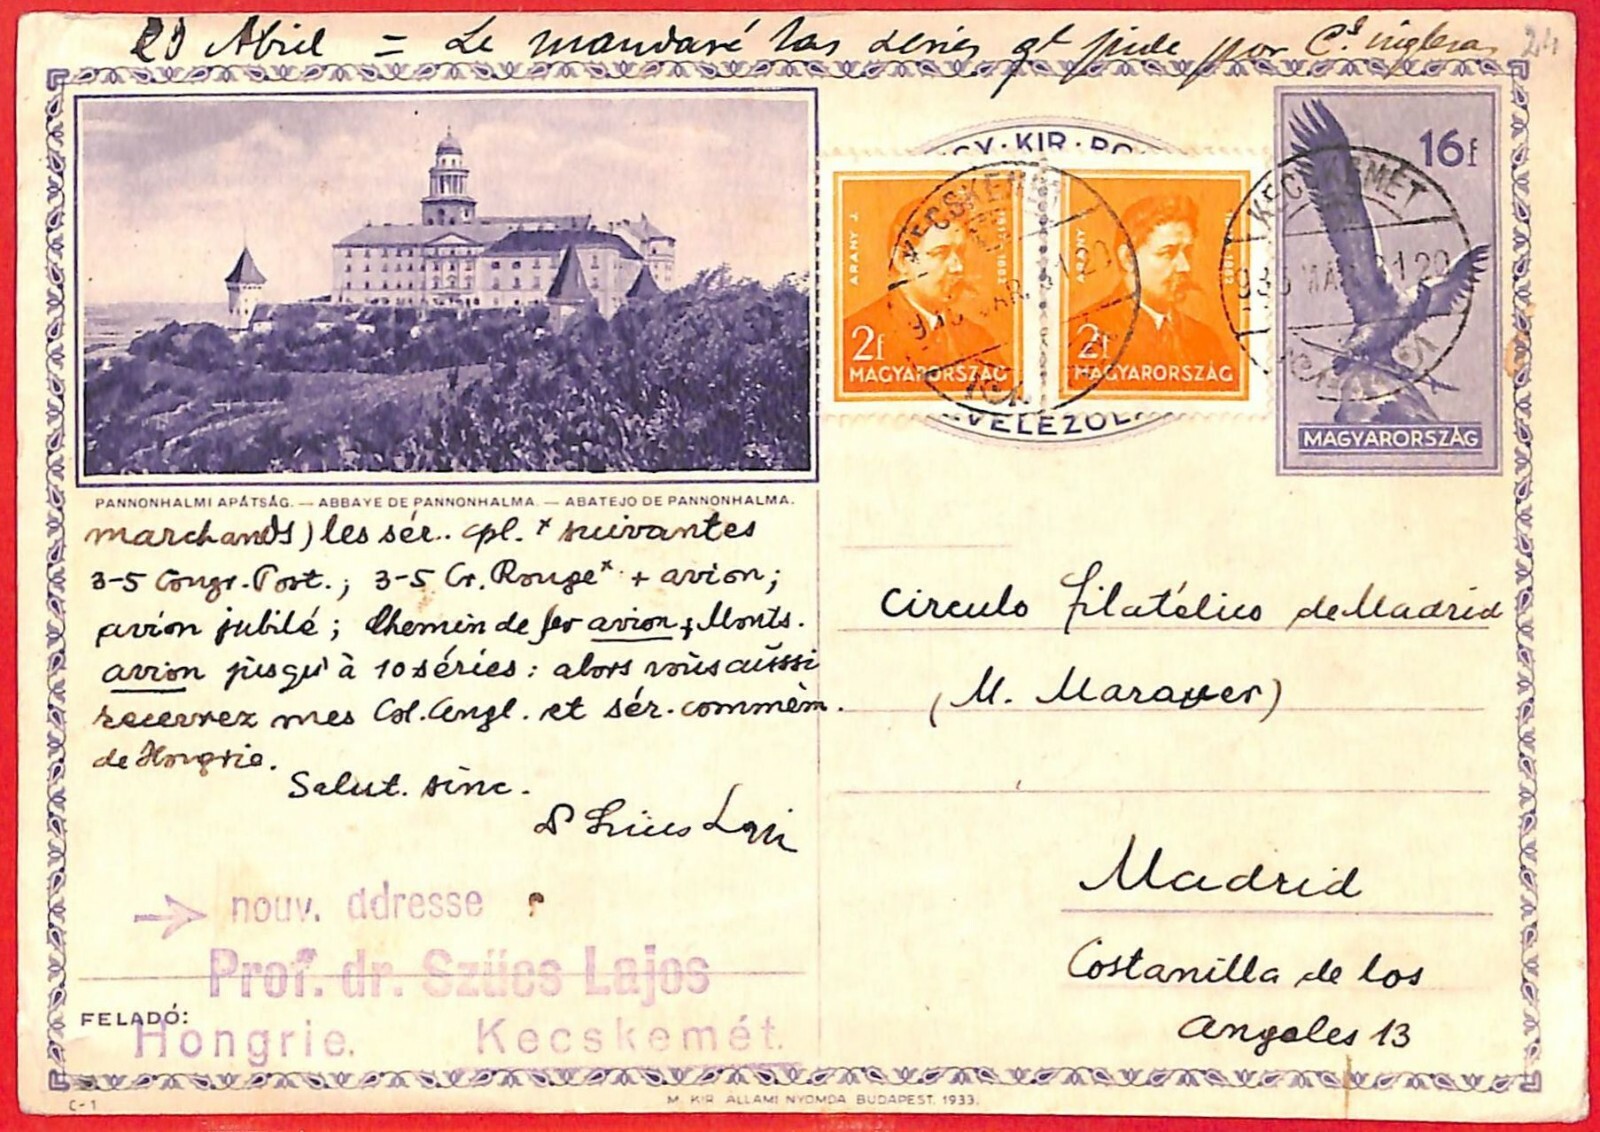 Abril = Le mandaré las series qᵗ pide por Cˢ inglesas 24
GY · KIR · PO
ARANY J.
1817-1882
2f
MAGYARORSZÁG
ARANY
1882
2f
MAGYARORSZÁG
KECSKEMÉT
VELEZŐL
KECSKEMÉT
16f
MAGYARORSZÁG
PANNONHALMI APÁTSÁG. — ABBAYE DE PANNONHALMA. — ABATEJO DE PANNONHALMA.
marchands) les sér.. cpl. x suivantes
3-5 Congr. Post.; 3-5 Cr. Rouge x + avion;
avion jubilé; Chemin de fer avion; Monts.
avion jusqu'à 10 séries: alors vous aussi
recevrez mes Col. Angl. et sér. commém.
de Hongrie.
Salut. sinc.
Dr Szücs Lajos
→ nouv. adresse
Prof. dr. Szücs Lajos
FELADÓ:
Hongrie. Kecskemét.
Circulo filatélico de Madrid
(M. Maraver)
Madrid
Costanilla de los
Angeles 13
C-1
M. KIR. ÁLLAMI NYOMDA BUDAPEST. 1933.